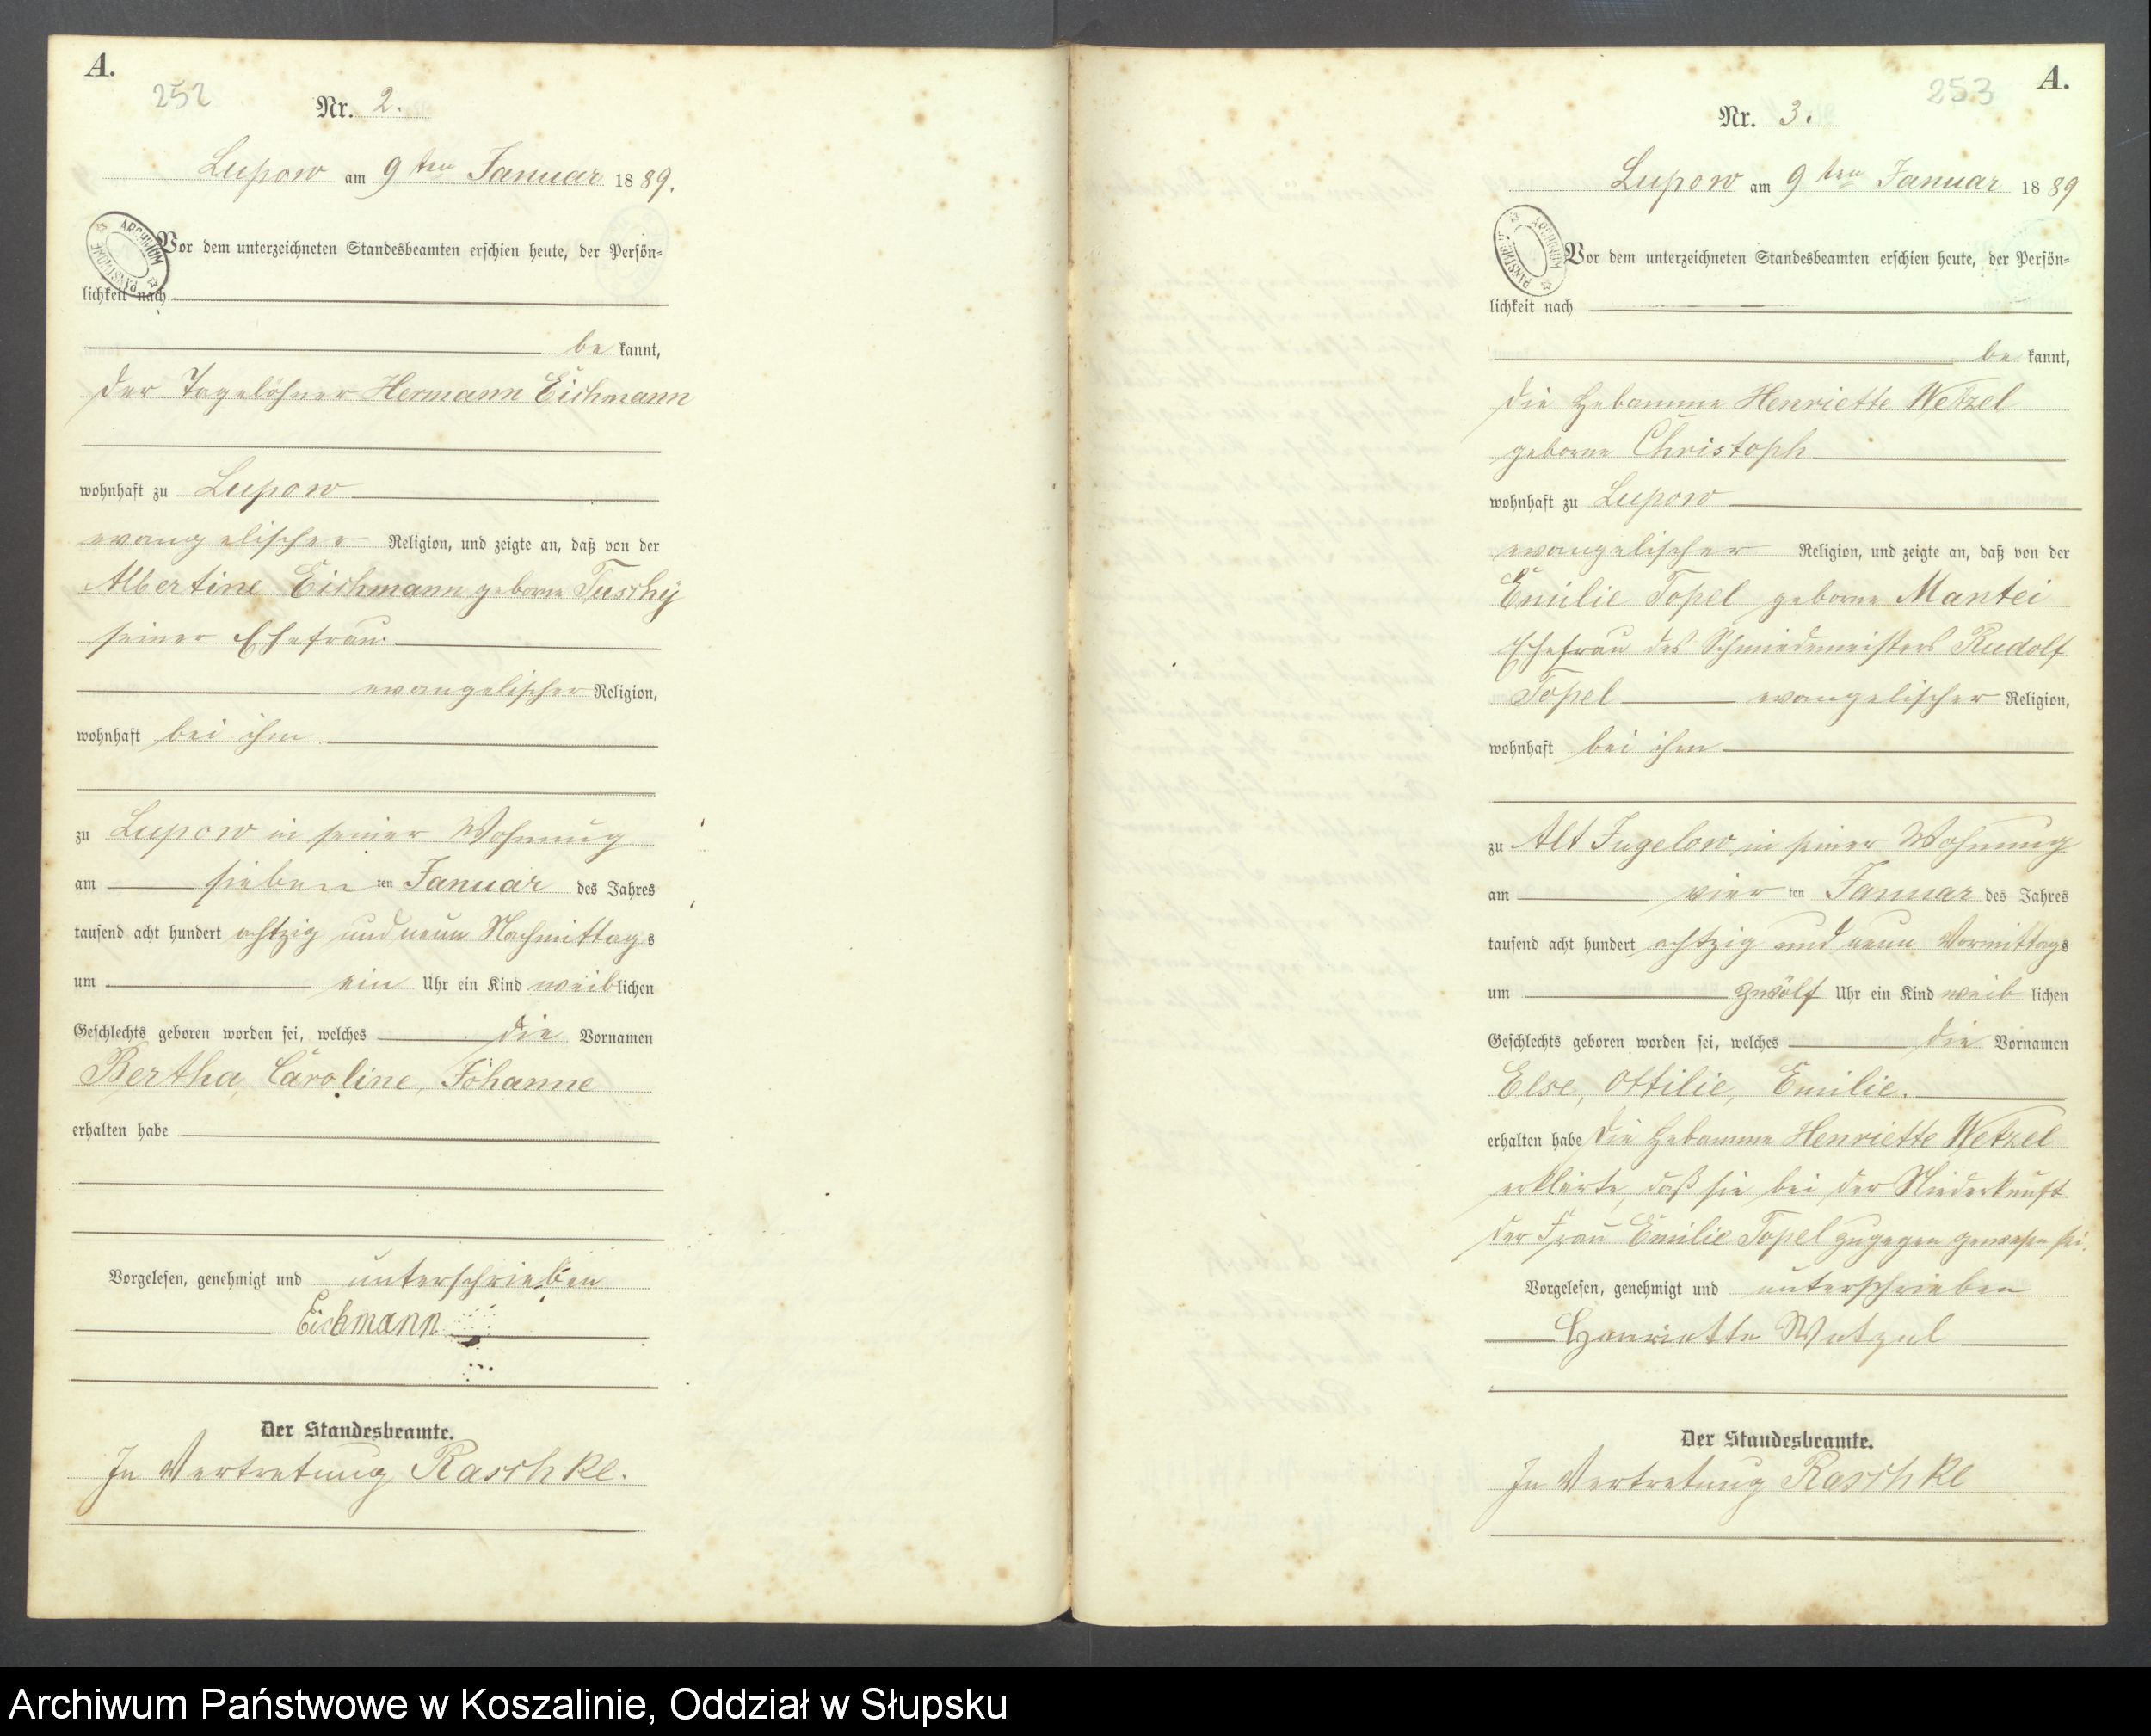 A.
252
Nr. 2.
Lupow am 9 ten Januar 1889.
Vor dem unterzeichneten Standesbeamten erschien heute, der Persön=
lichkeit nach
be kannt,
der Tagelöhner Hermann Eichmann
wohnhaft zu Lupow
evangelischer Religion, und zeigte an, daß von der
Albertine Eichmann geborne Tuschy
seiner Ehefrau
evangelischer Religion,
wohnhaft bei ihm
zu Lupow in seiner Wohnung
am sieben ten Januar des Jahres
tausend acht hundert achtzig und neun Nachmittags
um ein Uhr ein Kind weiblichen
Geschlechts geboren worden sei, welches die Vornamen
Bertha, Caroline, Johanne
erhalten habe
Vorgelesen, genehmigt und unterschrieben
Eichmann
Der Standesbeamte.
In Vertretung Raschke.
ARCHIWUM PAŃSTWOWE
A.
253
Nr. 3.
Lupow am 9 ten Januar 1889
Vor dem unterzeichneten Standesbeamten erschien heute, der Persön=
lichkeit nach
be kannt,
die Hebamme Henriette Wetzel
geborne Christoph
wohnhaft zu Lupow
evangelischer Religion, und zeigte an, daß von der
Emilie Topel geborne Mantei
Ehefrau des Schmiedemeisters Rudolf
Topel evangelischer Religion,
wohnhaft bei ihm
zu Alt Jugelow in seiner Wohnung
am vier ten Januar des Jahres
tausend acht hundert achtzig und neun Vormittags
um zwölf Uhr ein Kind weib lichen
Geschlechts geboren worden sei, welches die Vornamen
Else, Ottilie, Emilie.
erhalten habe die Hebamme Henriette Wetzel
erklärte, daß sie bei der Niederkunft
der Frau Emilie Topel zugegen gewesen sei.
Vorgelesen, genehmigt und unterschrieben
Henriette Wetzel
Der Standesbeamte.
In Vertretung Raschke
ARCHIWUM PAŃSTWOWE
Archiwum Państwowe w Koszalinie, Oddział w Słupsku